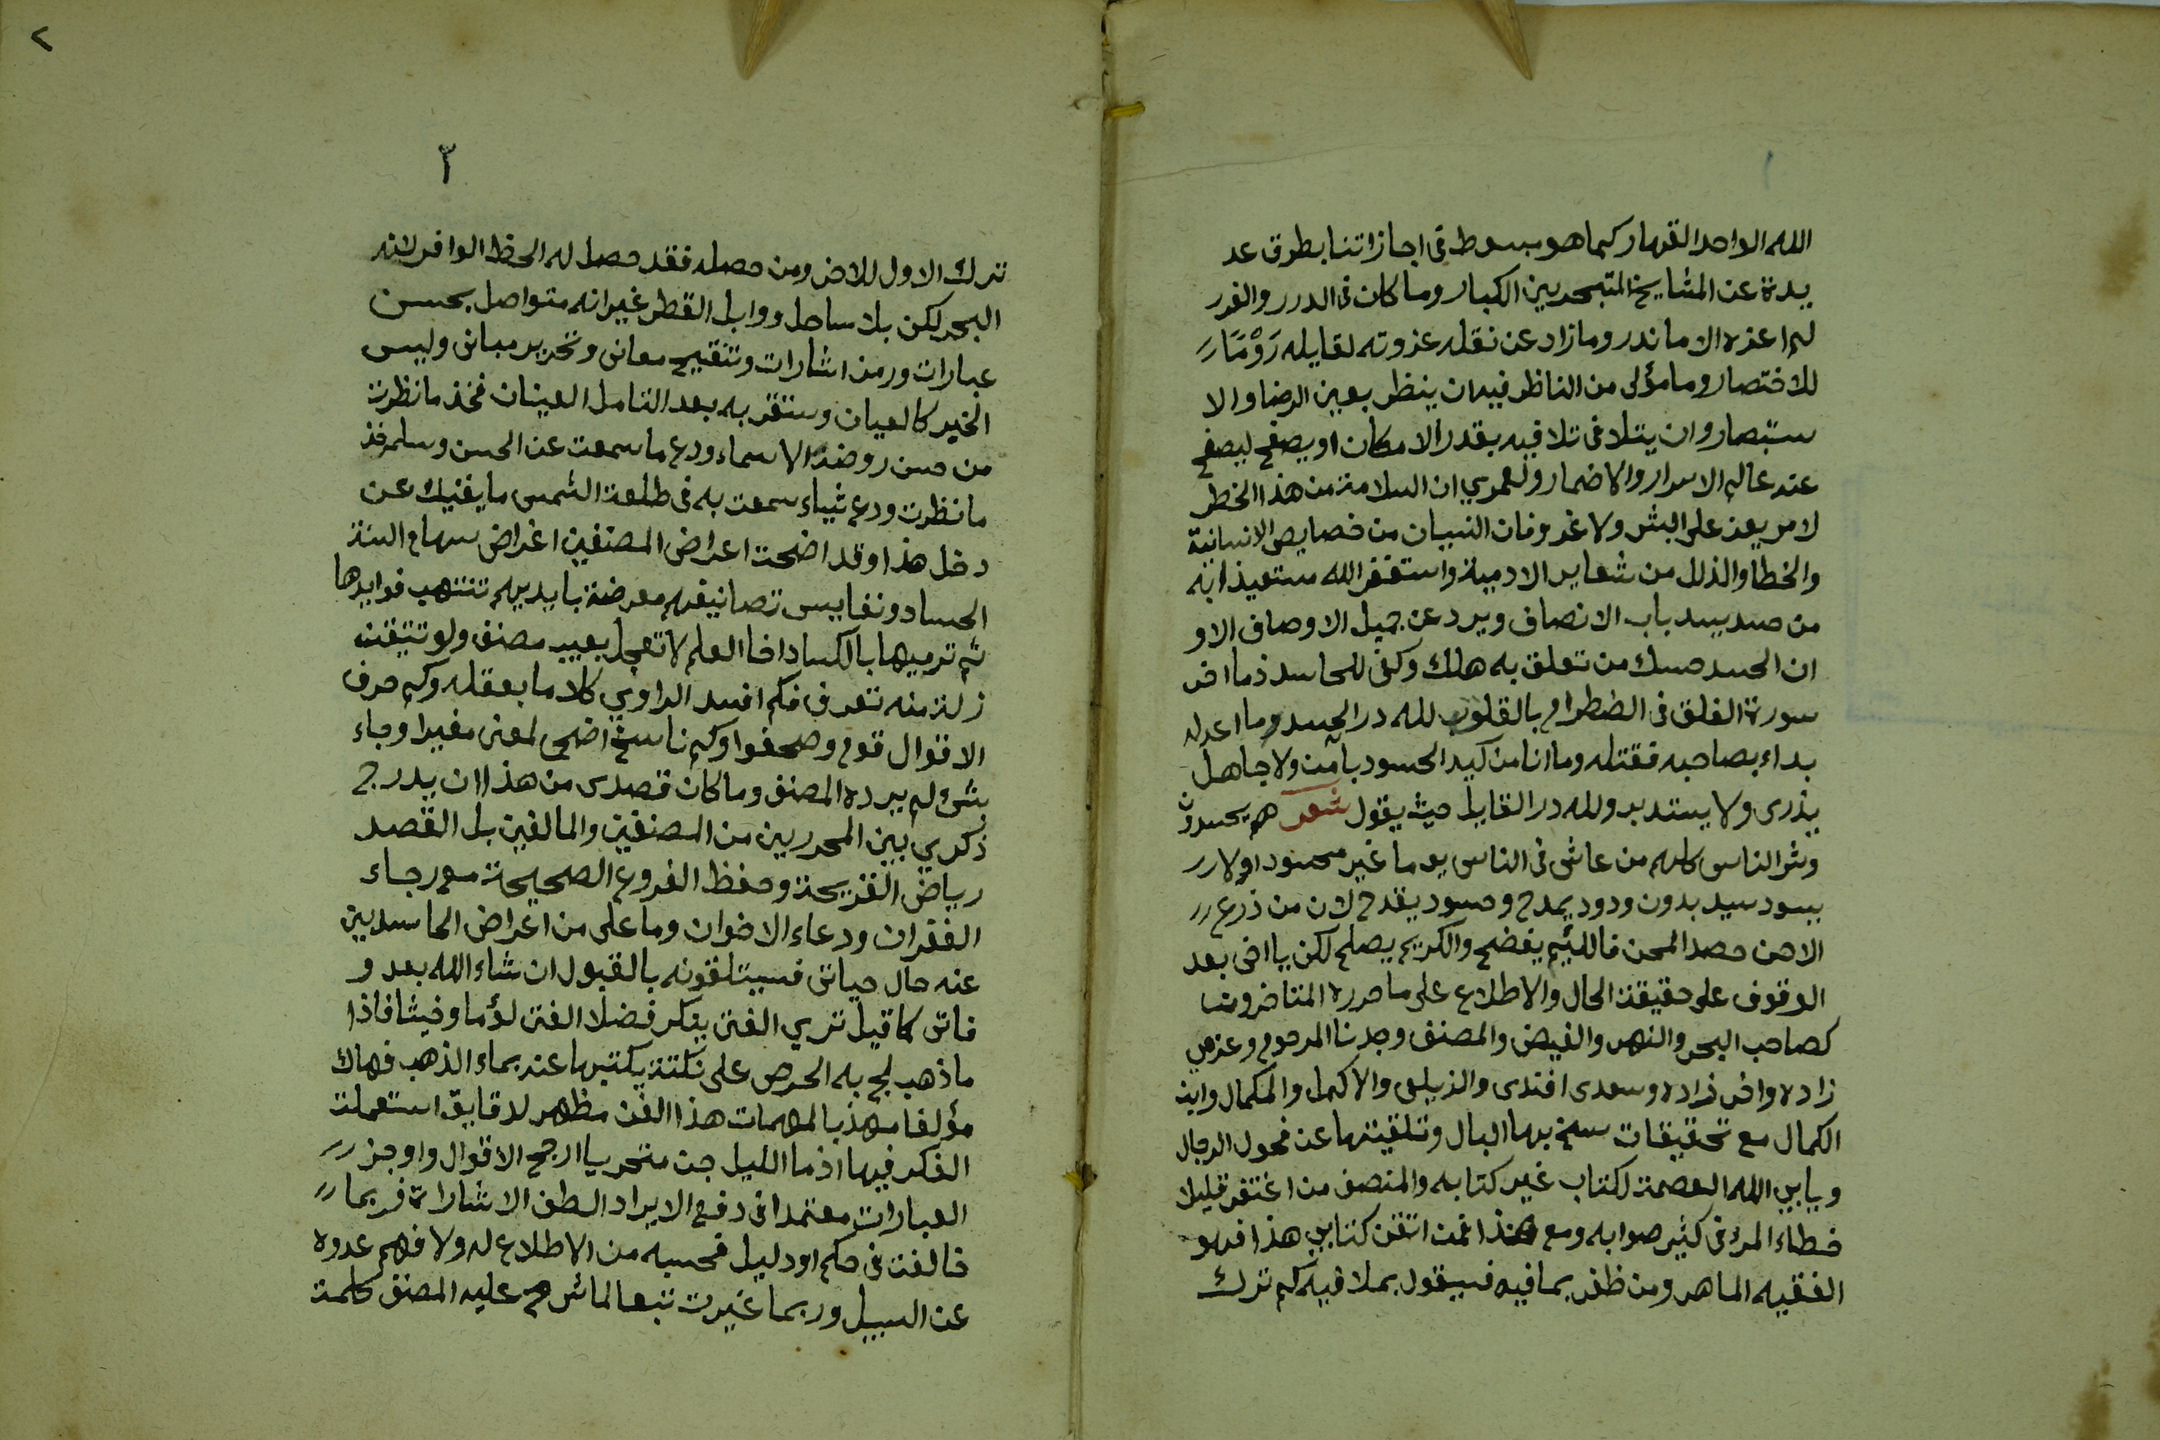 الله الواحد القهار كما هو مبسوط فى اجازاتنا بطرق عد
يدة عن المشايخ المتبحرين الكبار وما كان فى الدرر والغرر
لم اعزه الا ما ندر وما زاد عن نقله عزوته لقايله رَوْمًا
للاختصار ومامؤلى من الناظر فيه ان ينظر بعين الرضا والا
ستبصار وان يتلافى تلافيه بقدر الامكان او يصفح ليصفح
عند عالم الاسرار والاضمار ولعمري ان السلامة من هذا الخطر
لامر يعز على البشر ولا غرو فان النسيان من خصايص الانسانية
والخطا والذلل من شعاير الادمية واستغفر الله مستعيذا به
من حسد يسد باب الانصاف ويرد عن جميل الاوصاف الاو
ان الحسد حسك من تعلق به هلك وكفى للحاسد ذما اخر
سورة الفلق فى اضطرام بالقلق لله در الحسد وما اعدله
بداء بصاحبه فقتله وما انا من كيد الحسود بآمن ولا جاهل
يذرى ولا يستدبر ولله در القايل حيث يقول شعر هم يحسدون
وشر الناس كلهم من عاش فى الناس يوما غير محسود اولا
يسود سيد بدون ودود يمدح وحسود يقدح لان من ذرع
الاحن حصد المحن فاللئيم يفضح والكريم يصلح لكن يا اخى بعد
الوقوف على حقيقة الحال والاطلاع على ما حرره المتاخرون
كصاحب البحر والنهر والفيض والمصنف وجدنا المرحوم وعزمى
زاده واخى زاده وسعدى افندى والزيلعى والاكمل والكمال وابن
الكمال مع تحقيقات سنح بها البال وتلقيتها عن فحول الرجال
ويابى الله العصمة لكتاب غير كتابه والمنصف من اغتفر قليلا
خطاء المرء فى كثير صوابه ومع هذا فمن اتقن كتابي هذا فهو
الفقيه الماهر ومن ظفر بما فيه فسيقول بملا فيه كم ترك
٣
ترك الاول للاخر ومن حصله فقد حصل له الحظ الوافر لانه
البحر لكن بلا ساحل ووابل القطر غير انه متواصل بحسن
عبارات ورمز اشارات وتنقيح معانى وتحرير مبانى وليس
الخبر كالعيان وستقر به بعد التامل العينان فخذ ما نظرت
من حسن روضه الاسماء ودع ما سمعت عن الحسن وسلم خذ
ما نظرت ودع شياء سمعت به فى طلعة الشمس ما يغنيك عن
دخل هذا وقد اضحت اعراض المصنفين اغراض سهام السنة
الحساد ونفايس تصانيفهم معرضة بايديهم تنتهب فوايدها
ثم ترميها بالكساد اخا العلم لا تعجل بعيب مصنف ولو تتيقن
زلة منه تعرف فكم افسد الراوي كلاما بعقله وكم حرف
الاقوال قوم وصحفوا وكم ناسخ اضحى لمعنى مغيرا وجاء
بشئ لم يرده المصنف وما كان قصدى من هذا ان يدرج
ذكري بين المحررين من المصنفين والمالفين بل القصد
رياض القريحة وحفظ الفروع الصحيحة مع رجاء
الغفران ودعاء الاخوان وما على من اعراض الحاسدين
عنه حال حياتى فسيتلقونه بالقبول ان شاء الله بعد و
فاتى كما قيل ترى الفتى ينكر فضلا الفتى لؤما وخبثا فاذا
ما ذهب لج به الحرص على نكتة يكتبها عنه بماء الذهب فهاك
مؤلفا مهذبا لمهمات هذا الفن مظهر لدقايق استعملت
الفكر فيها اذ ما الليل جن متحريا ارجح الاقوال واوجز
العبارات معتمدا فى دفع الايراد الطف الاشارات فربما
خالفت فى حكم او دليل فحسبه من الاطلاع له ولا فهم عدوه
عن السبيل وربما غيرت تبعا لما شرح عليه المصنف كلمة